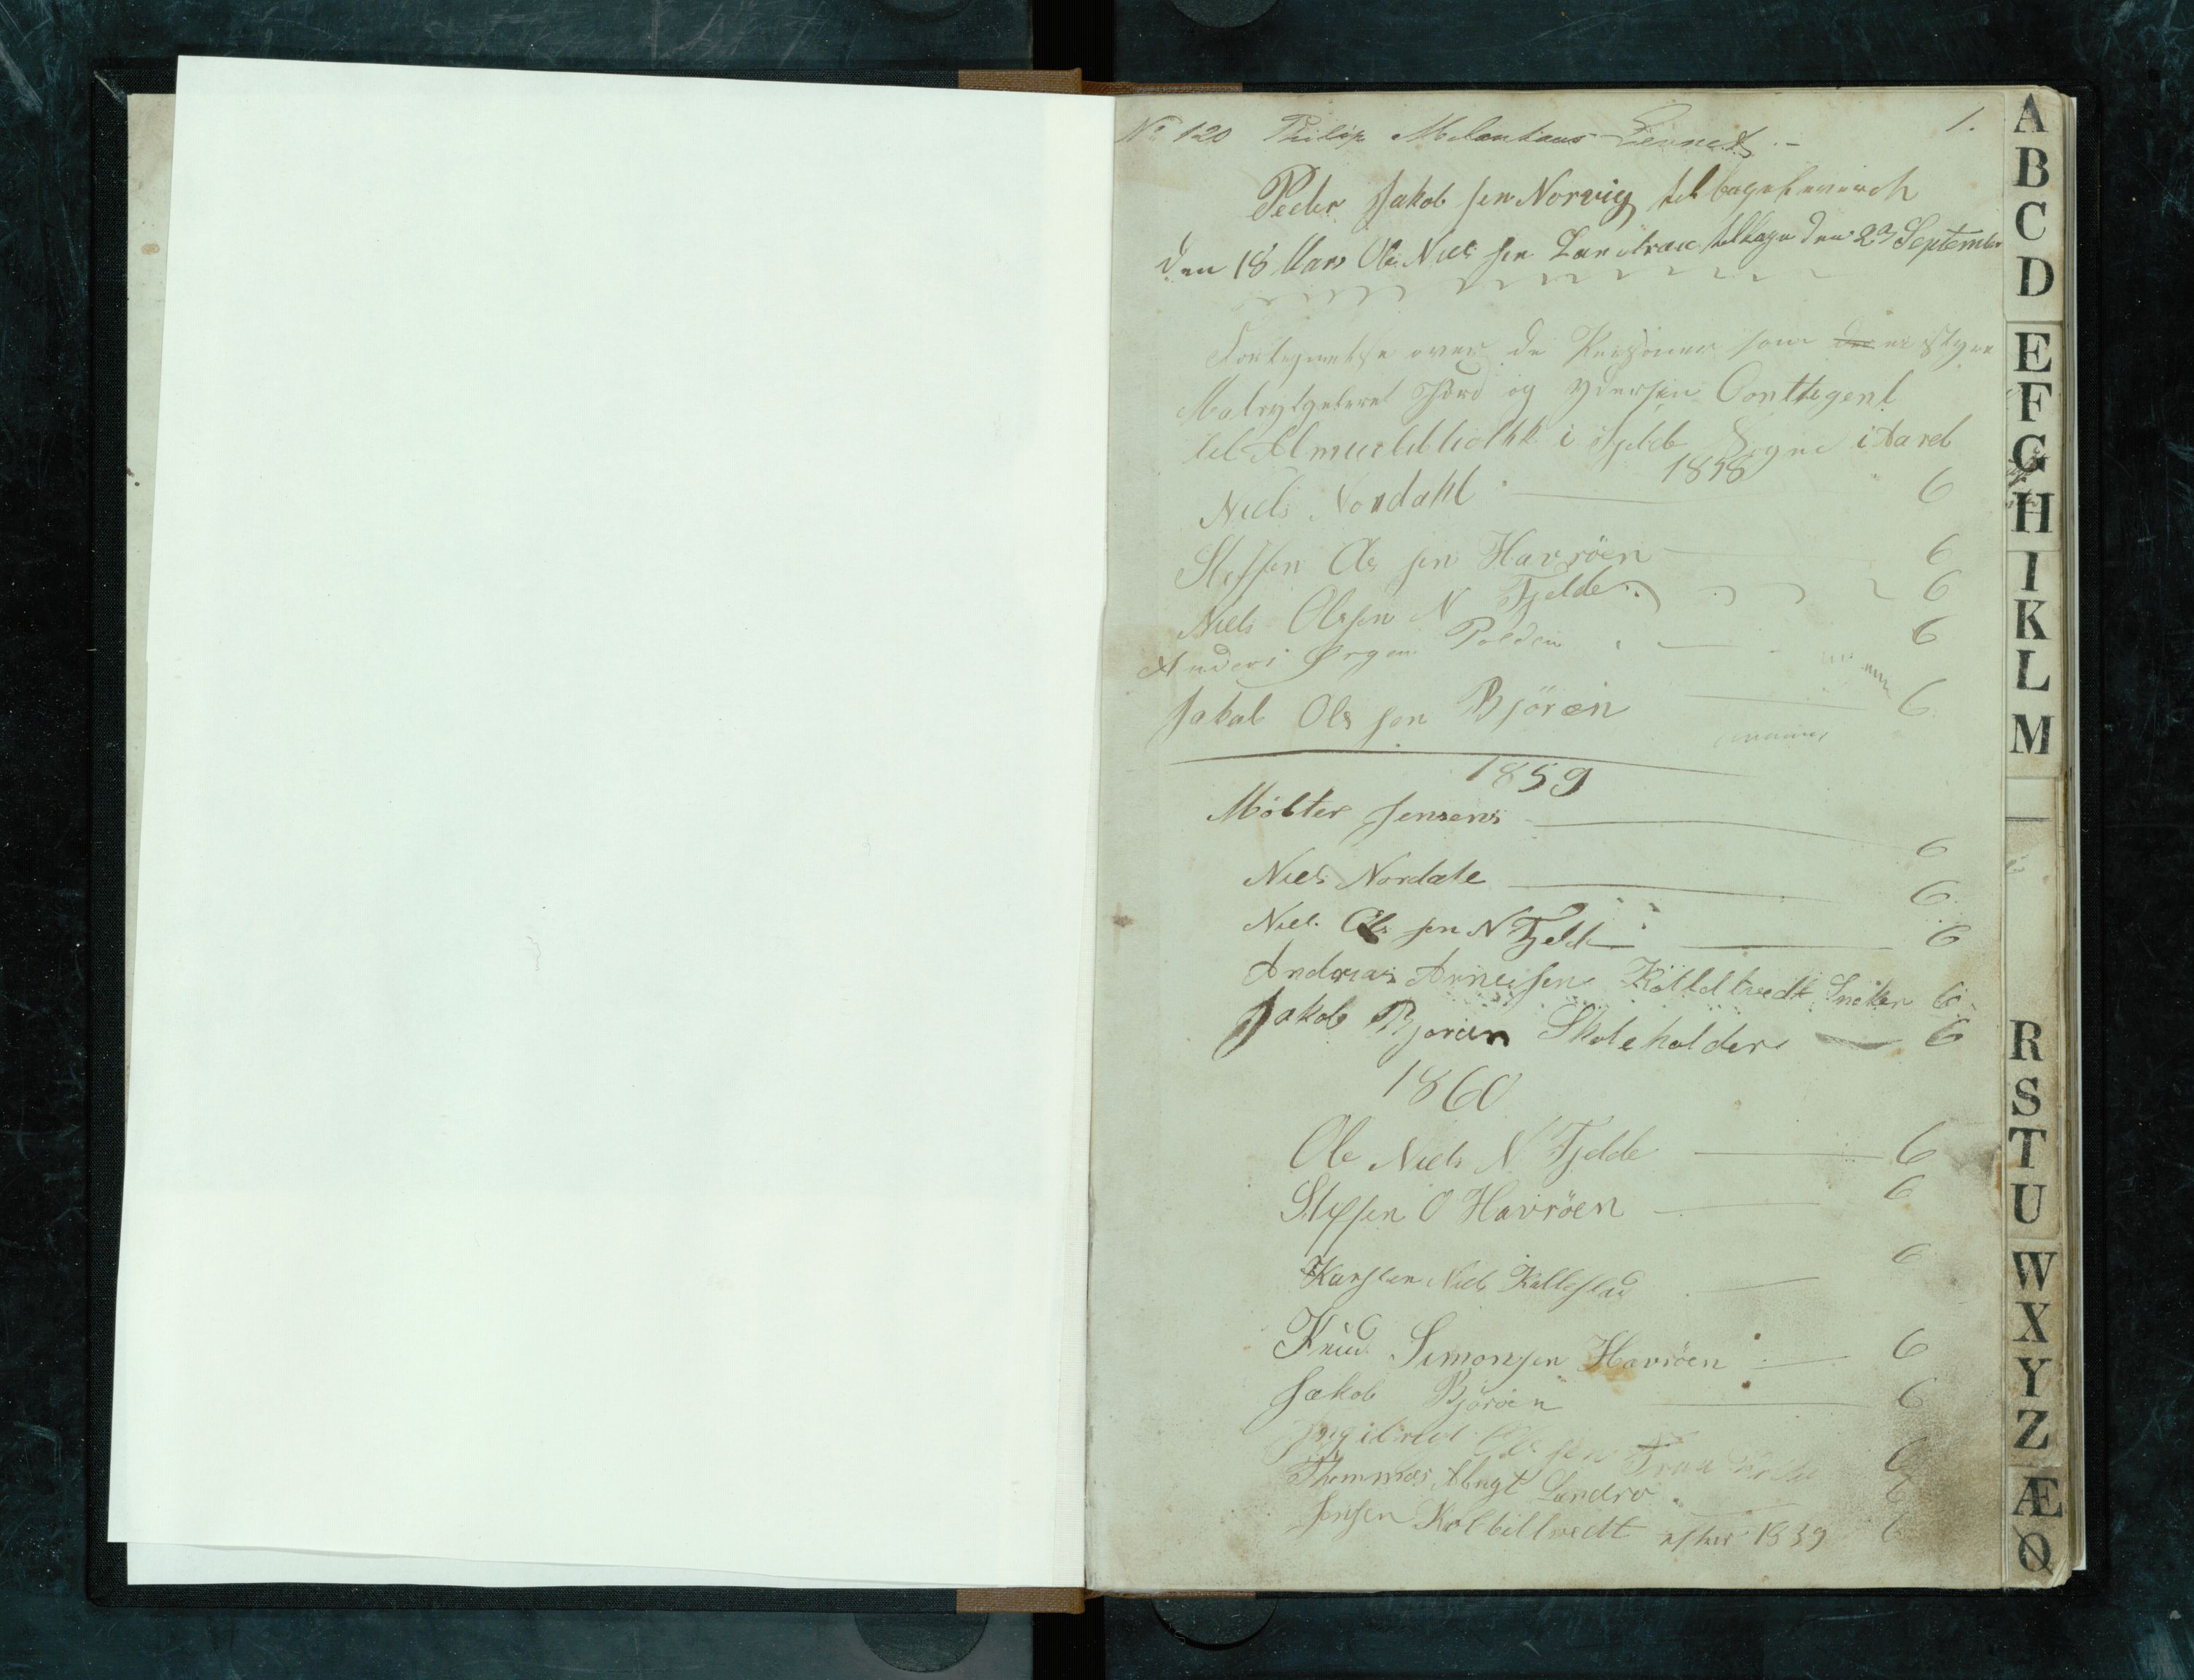 No 120 Philip Melanktons Levnet 1.
Peder Jakobsen Norvig tilbageleveret
den 18 Mars Ole Nielssen Landraae tilbage den 29 September
Fortegnelse over de Personer som der ei styre
Matrykuleret Jord og yder sin Conttegent
til Almuebibliothek i Fjelde Sogne i Aaret
1858
Niels Nordahl 6
Steffen Ols sen Havröen 6
Niels Olssen N Fjelde 6
Anders Ørgen Polden 6
Jakob Ols sen Björöen 6
1859
Möbter Jensens 6
Niels Nordale 6
Niels Ols sen N Fjeld 6
Andreas Arnessen Költeltvedt Sneker 6
Jakob Bjoröen Skoleholder 6
1860
Ole Niels N Fjelde 6
Steffen O Havröen 6
Karsten Niels Kallestad 6
Knud Simonsen Havröen 6
Jakob Björöen 6
Ols sen 6
Thommas Landro 6
Jensen Kolbeltvedt efter 1859 6
A
B
C
D
E
F
G
H
I
K
L
M
R
S
T
U
W
X
Y
Z
Æ
Ø